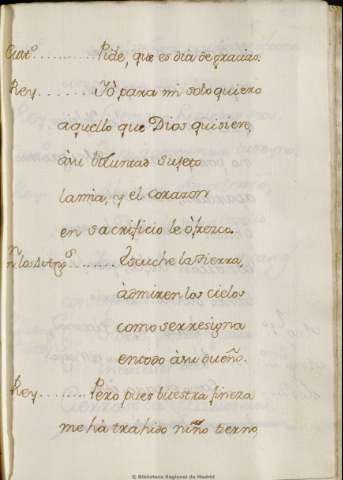 Curt.º .......... Pide, que es dia de gracias.
Rey ........ Yò para mi solo quiero
aquello que Dios quisiere,
à su voluntad sujeto
la mia, y el corazon
en sacrificio le ofrezco.
los ......... Escuche la tierra,
àdmiren los cielos
como se resigna
en todo à su dueño.
Rey ........ Pero pues buestra fineza
me hà trahido niño tierno,
© Biblioteca Regional de Madrid